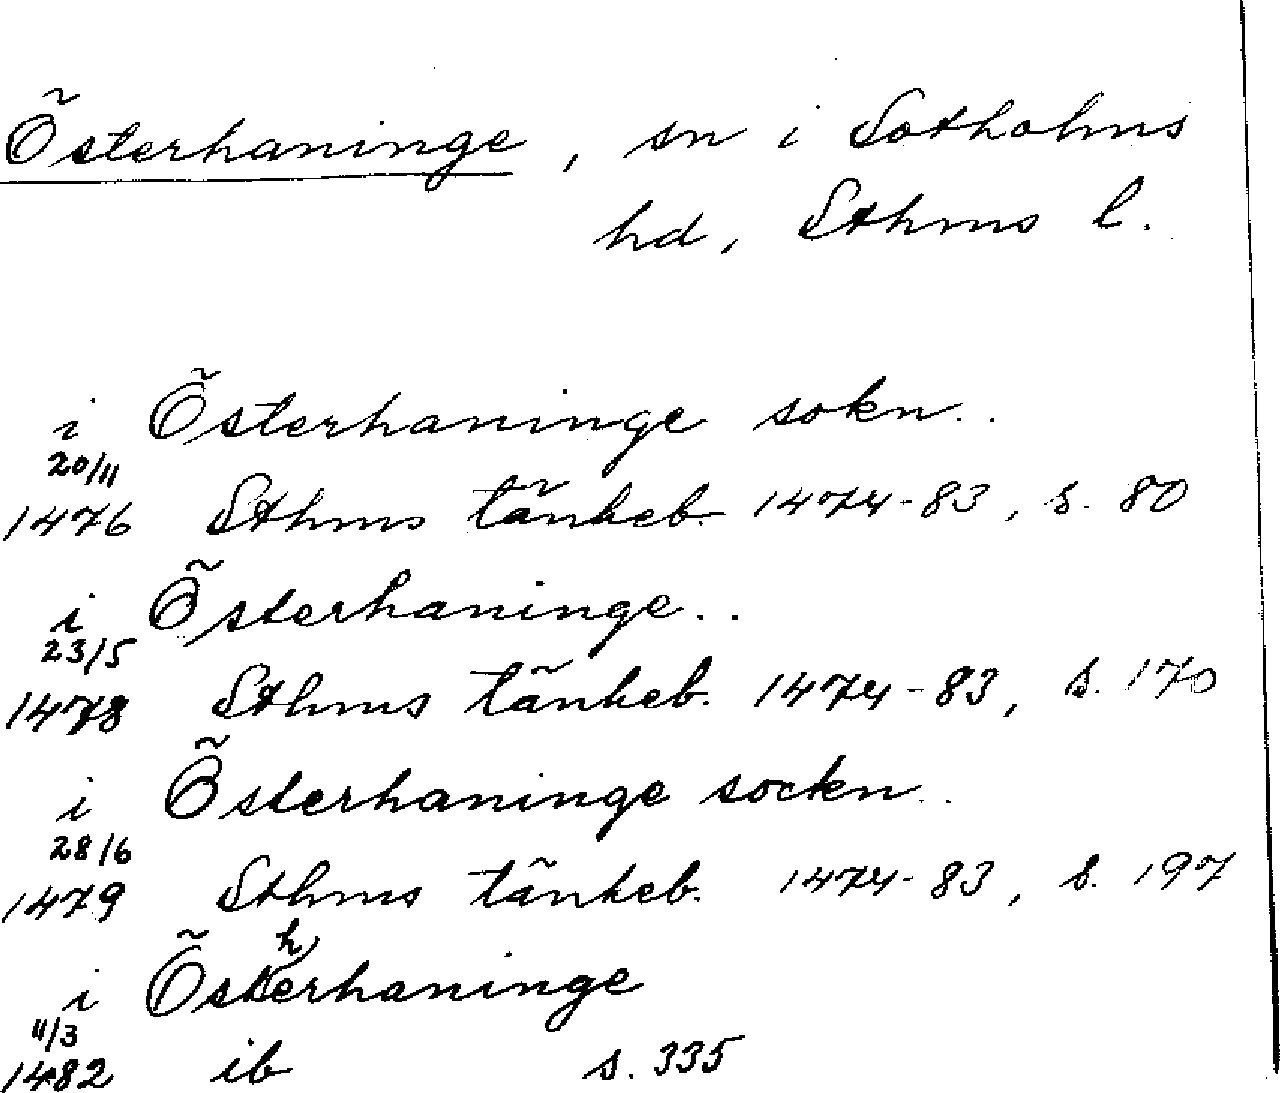 Österhaninge, sn i Sotholms
hd, Sthms l.
i Österhaninge sokn..
20/11
1476 Sthms tänkeb. 1474-83, s. 80
i Österhaninge..
23/5
1478 Sthms tänkeb. 1474-83, s. 170
i Österhaninge sockn..
28/6
1479 Sthms tänkeb. 1474-83, s. 197
h
i Österhaninge
11/3
1482 ib s. 335